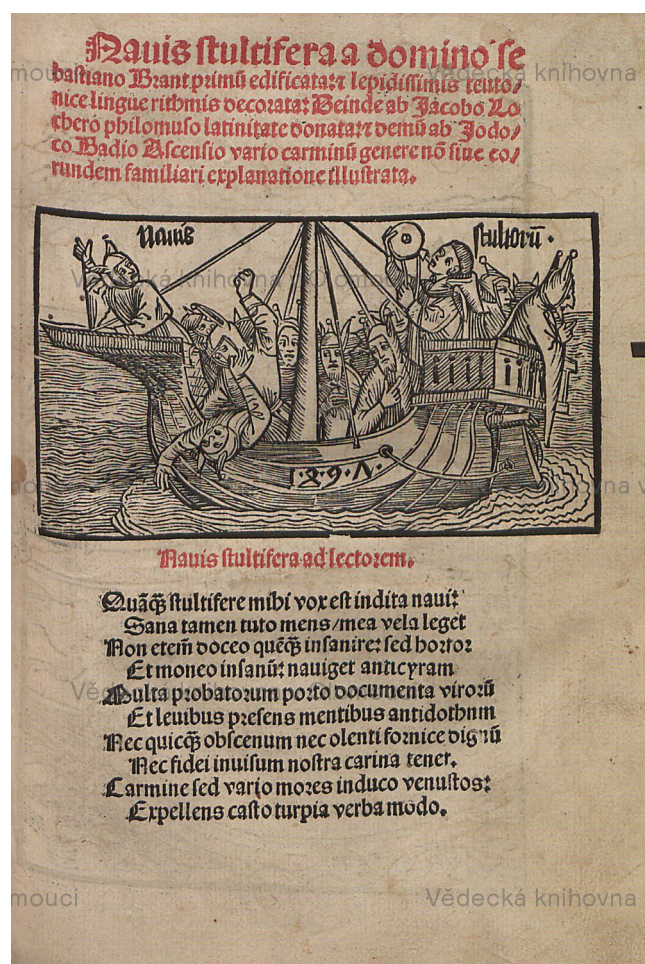 Nauis stultifera a domino se
bastiano Brant primū edificata: ⁊ lepidissimis teuto/
nice lingue rithmis decorata: Deinde ab Jacobo Lo
chero philomuso latinitate donata: ⁊ demū ab Jodo/
co Badio Ascensio vario carminū genere nō sine eo/
rundem familiari explanatione illustrata.
Nauis stultorū.
1.4.9.Λ.
Nauis stultifera ad lectorem.
Quāꝙ̄ stultifere mihi vox est indita naui:
Sana tamen tuto mens/mea vela leget
Non etem̄ doceo quēꝙ̄ insanire: sed hortor
Et moneo insanū: nauiget anticyram
Multa probatorum porto documenta virorū
Et leuibus presens mentibus antidothum
Nec quicꝙ̄ obscenum nec olenti fornice dignū
Nec fidei inuisum nostra carina tenet.
Carmine sed vario mores induco venustos:
Expellens casto turpia verba modo.
Vědecká knihovna